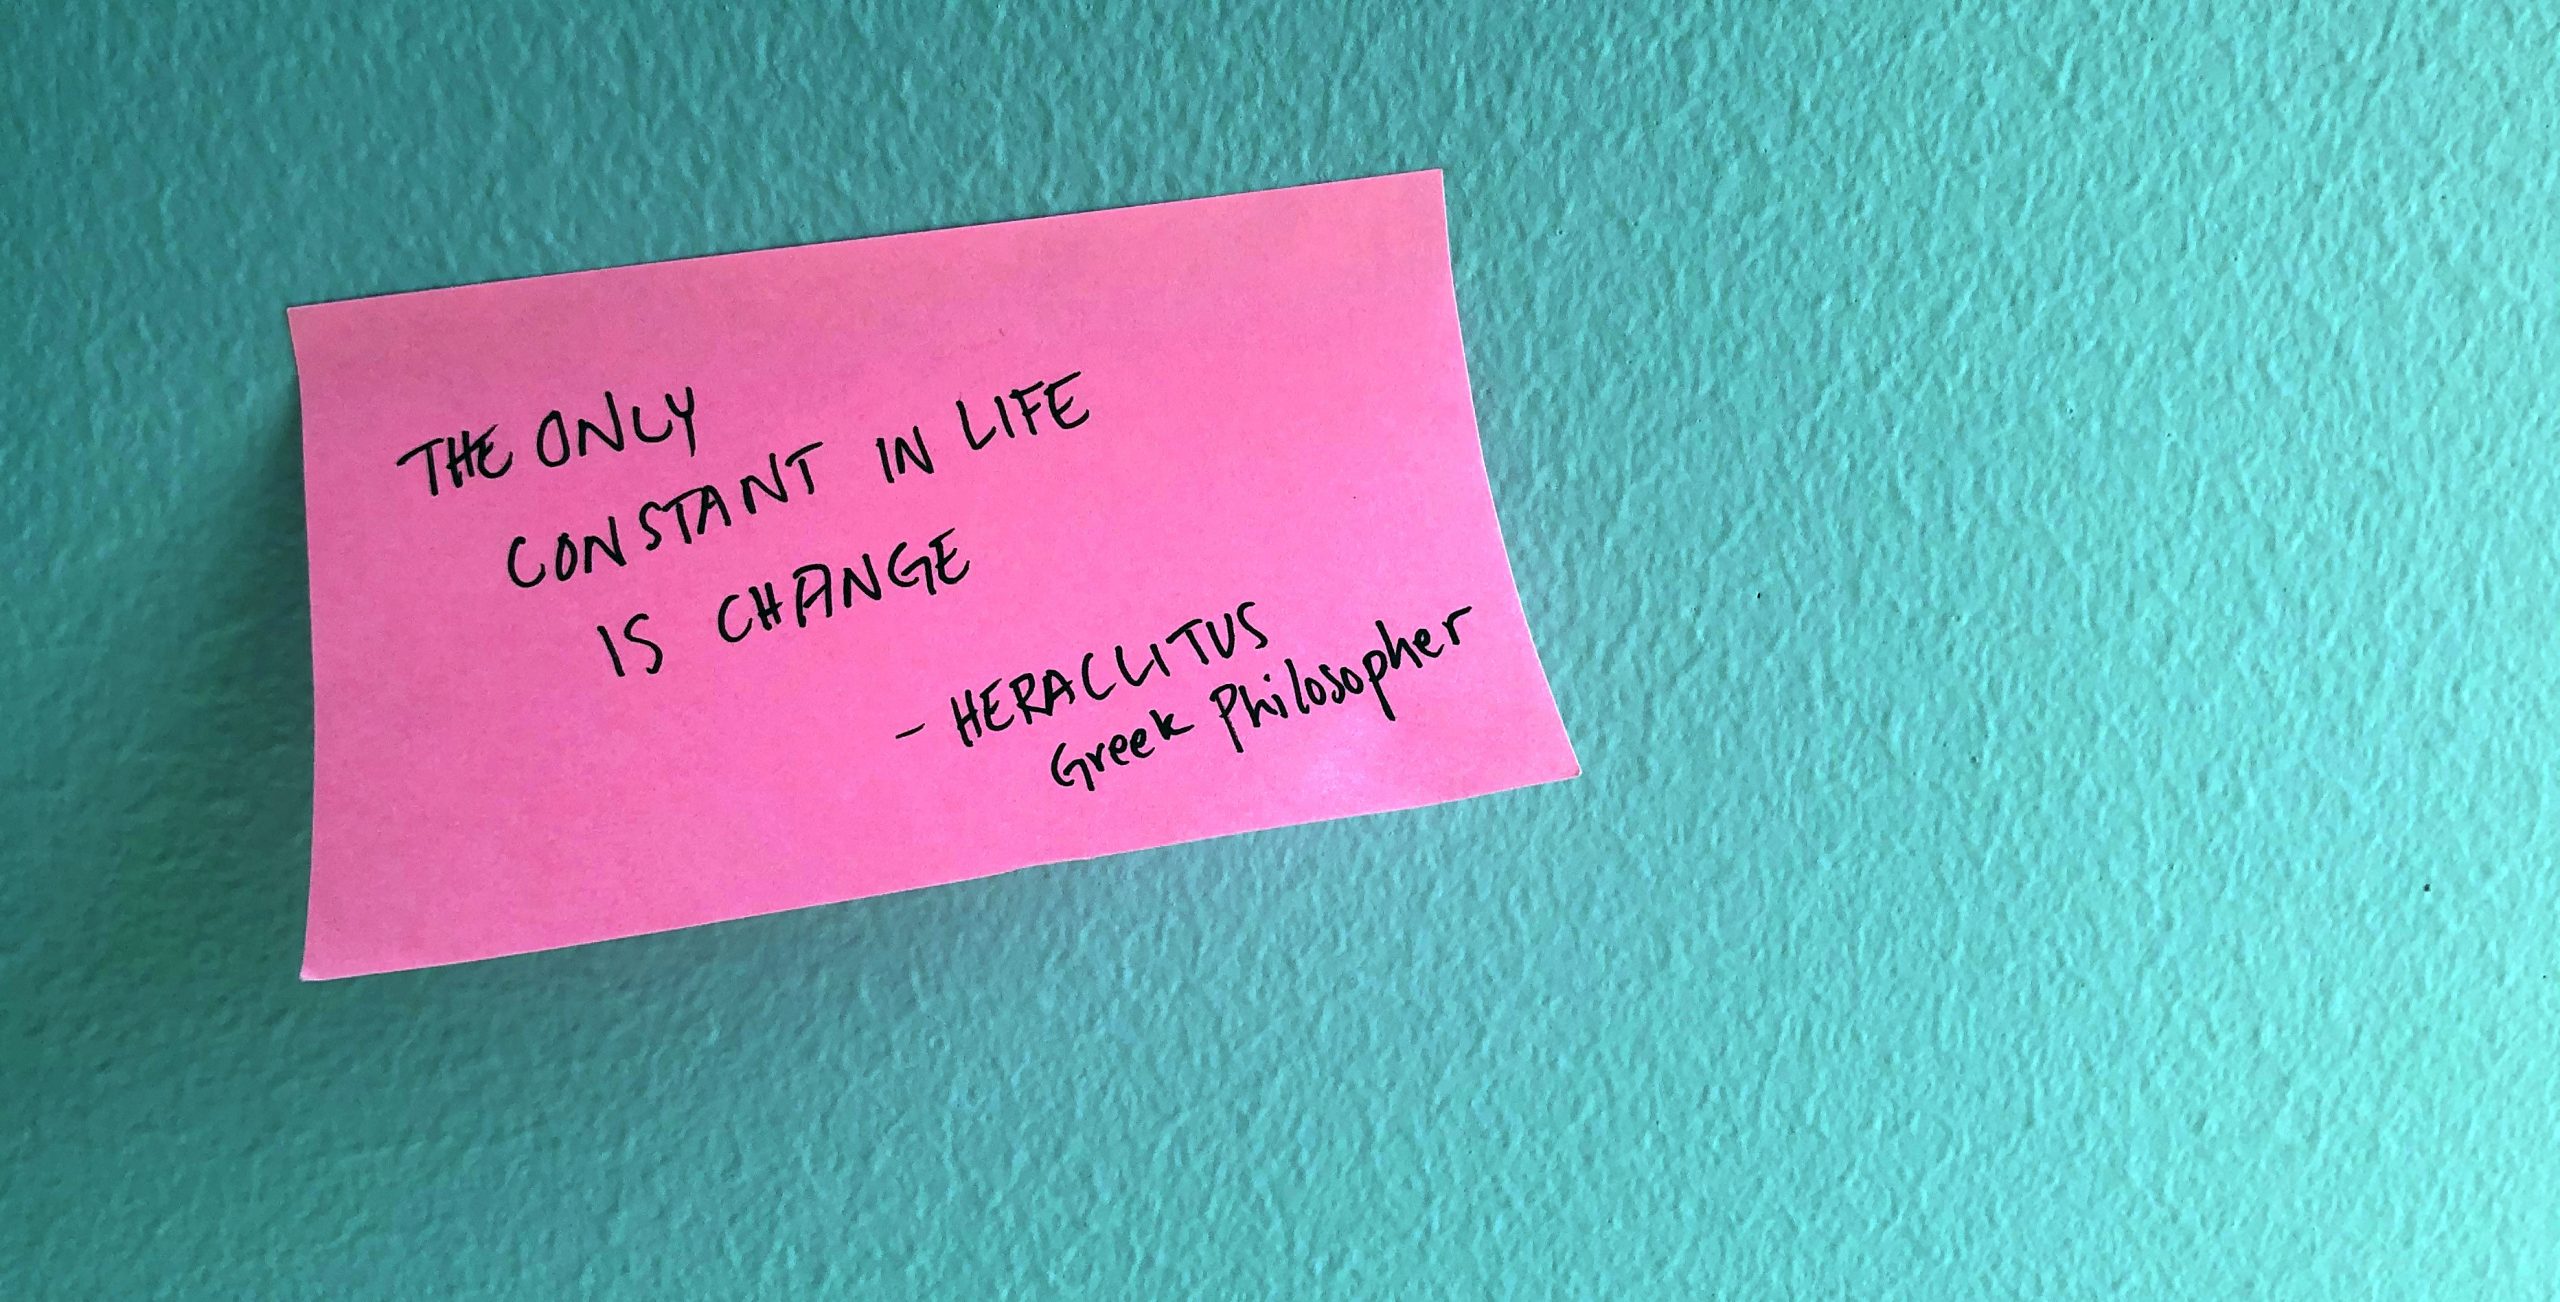 THE ONLY
CONSTANT IN LIFE
IS CHANGE
- HERACLITUS
Greek Philosopher